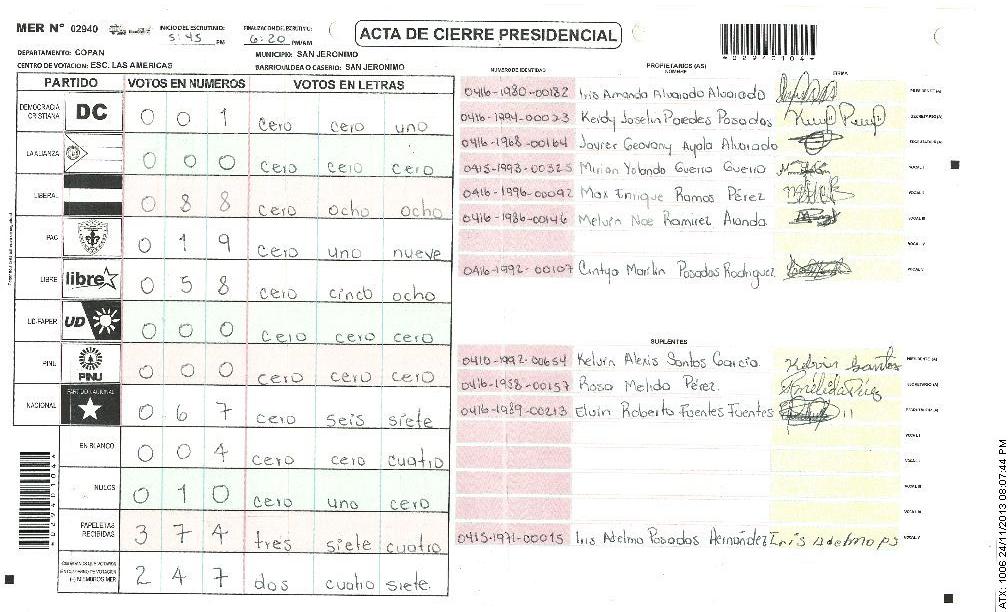 MER N° 02940 INICIO DEL ESCRUTINIO: 5:45 PM FINALIZACION DEL ESCRUTINIO: 6:20 PM/AM
ACTA DE CIERRE PRESIDENCIAL
DEPARTAMENTO: COPAN MUNICIPIO: SAN JERONIMO
CENTRO DE VOTACION: ESC. LAS AMERICAS BARRIO/ALDEA O CASERIO: SAN JERONIMO
PARTIDO VOTOS EN NUMEROS VOTOS EN LETRAS
DEMOCRACIA CRISTIANA DC 0 0 1 cero cero uno
LA ALIANZA 0 0 0 cero cero cero
LIBERAL 0 8 8 cero ocho ocho
PAC 0 1 9 cero uno nueve
LIBRE libre 0 5 8 cero cinco ocho
UD-FAPER UD 0 0 0 cero cero cero
PINU PINU 0 0 0 cero cero cero
NACIONAL PARTIDO NACIONAL 0 6 7 cero seis siete
EN BLANCO 0 0 4 cero cero cuatro
NULOS 0 1 0 cero uno cero
PAPELETAS RECIBIDAS 3 7 4 tres siete cuatro
2 4 7 dos cuatro siete
NUMERO DE IDENTIDAD PROPIETARIOS (AS) NOMBRE FIRMA
0416-1980-00182 Iris Amanda Alvarado Alvarado PRESIDENTE (A)
0416-1994-00023 Keidy Joselin Paredes Posadas SECRETARIO (A)
0416-1968-00164 Javier Geovany Ayala Alvarado ESCRUTADOR (A)
0415-1993-00325 Mirian Yolanda Guerra Guerra VOCAL I
0416-1996-00092 Max Enrique Ramos Pérez VOCAL II
0416-1986-00146 Melvin Noe Ramirez VOCAL III
VOCAL IV
0416-1992-00107 Cintya Marilin Posadas Rodriguez VOCAL V
SUPLENTES
0410-1992-00654 Kelvin Alexis Santos García Kelvin Santos PRESIDENTE (A)
0416-1958-00157 Rosa Melida Pérez SECRETARIO (A)
0416-1989-00213 Elvin Roberto Fuentes Fuentes ESCRUTADOR (A)
VOCAL I
VOCAL II
VOCAL III
VOCAL IV
0415-1971-00015 Iris Adelma Posadas Hernández Iris Adelma P S VOCAL V
ATX: 1006 24/11/2013 08:07:44 PM